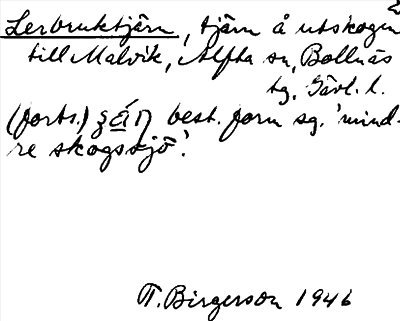 2
Lerbruktjärn, tjärn å utskogen
till Malvik, Alfta sn, Bollnäs
tg, Gävl. l.
(forts.) best. form sg. 'mind-
re skogssjö'.
T. Birgerson 1946